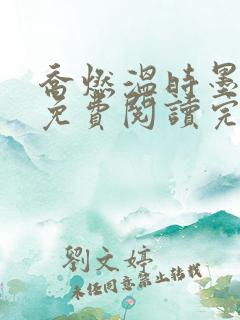 喬燃溫時墨
免費閱讀完
劉文婷
未經同意禁止轉載